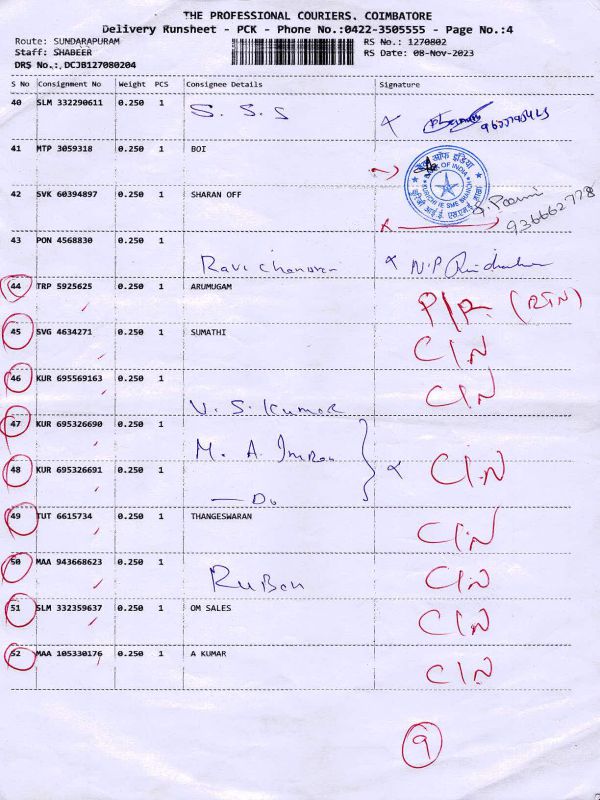 THE PROFESSIONAL COURIERS. COIMBATORE
Delivery Runsheet - PCK - Phone No.:0422-3505555 - Page No.:4
Route: SUNDARAPURAM RS No.: 1270802
Staff: SHABEER RS Date: 08-Nov-2023
DRS No.:.DCJB127080204
S No Consignment No Weight PCS Consignee Details Signature
40 SLM 332290611 0.250 1 S. S. S
41 MTP 3059318 0.250 1 BOI
बैंक ऑफ इंडिया
BANK OF INDIA
KURICHI IE SME BRANCH
42 SVK 60394897 0.250 1 SHARAN OFF
936662778
43 PON 4568830 0.250 1 Ravi chandran N.P
44 TRP 5925625 0.250 1 ARUMUGAM P/R (RTN)
45 SVG 4634271 0.250 1 SUMATHI C/N
46 KUR 695569163 0.250 1 V. S. Kumar C/N
47 KUR 695326690 0.250 1 M. A. Imran
48 KUR 695326691 0.250 1 — Do C/N
49 TUT 6615734 0.250 1 THANGESWARAN C/N
50 MAA 943668623 0.250 1 Ruben C/N
51 SLM 332359637 0.250 1 OM SALES C/N
52 MAA 105330176 0.250 1 A KUMAR C/N
9